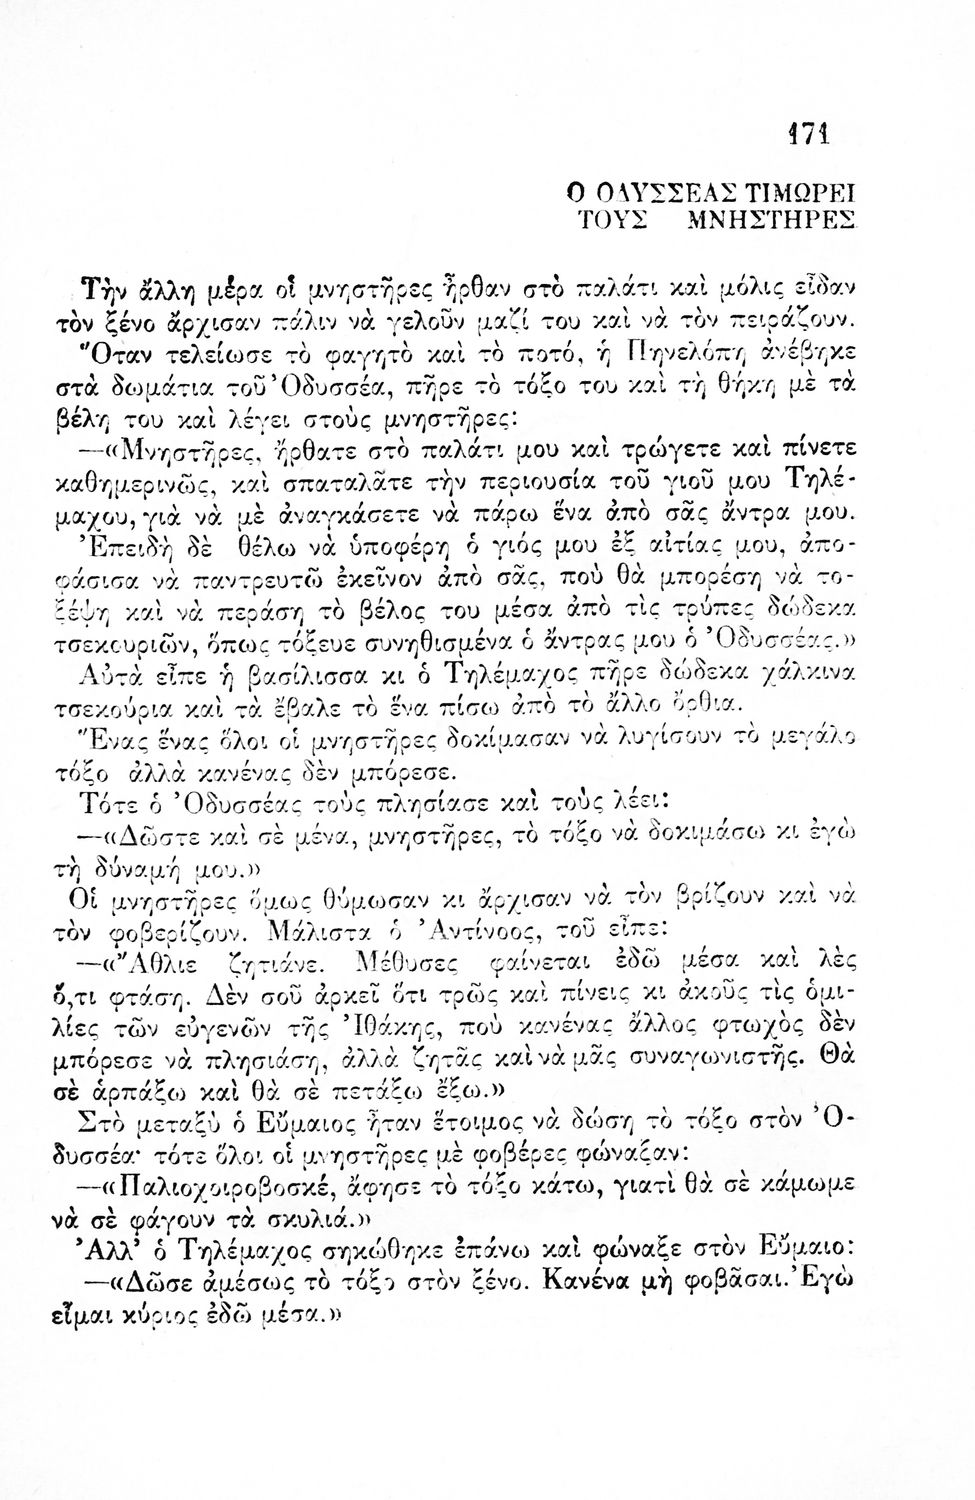 171
Ο ΟΔΥΣΣΕΑΣ ΤΙΜΩΡΕΙ
ΤΟΥΣ ΜΝΗΣΤΗΡΕΣ
Τὴν ἄλλη μέρα οἱ μνηστῆρες ἦρθαν στὸ παλάτι καὶ μόλις εἶδαν
τὸν ξένο ἄρχισαν πάλιν νὰ γελοῦν μαζί του καὶ νὰ τὸν πειράζουν.
Ὅταν τελείωσε τὸ φαγητὸ καὶ τὸ ποτό, ἡ Πηνελόπη ἀνέβηκε
στὰ δωμάτια τοῦ Ὀδυσσέα, πῆρε τὸ τόξο του καὶ τὴ θήκη μὲ τὰ
βέλη του καὶ λέγει στοὺς μνηστῆρες:
—«Μνηστῆρες, ἤρθατε στὸ παλάτι μου καὶ τρώγετε καὶ πίνετε
καθημερινῶς, καὶ σπαταλᾶτε τὴν περιουσία τοῦ γιοῦ μου Τηλέ-
μαχου, γιὰ νὰ μὲ ἀναγκάσετε νὰ πάρω ἕνα ἀπὸ σᾶς ἄντρα μου.
Ἐπειδὴ δὲ θέλω νὰ ὑποφέρη ὁ γιός μου ἐξ αἰτίας μου, ἀπο-
φάσισα νὰ παντρευτῶ ἐκεῖνον ἀπὸ σᾶς, ποὺ θὰ μπορέση νὰ το-
ξέψη καὶ νὰ περάση τὸ βέλος του μέσα ἀπὸ τὶς τρύπες δώδεκα
τσεκουριῶν, ὅπως τόξευε συνηθισμένα ὁ ἄντρας μου ὁ Ὀδυσσέας.»
Αὐτὰ εἶπε ἡ βασίλισσα κι ὁ Τηλέμαχος πῆρε δώδεκα χάλκινα
τσεκούρια καὶ τὰ ἔβαλε τὸ ἕνα πίσω ἀπὸ τὸ ἄλλο ὄρθια.
Ἕνας ἕνας ὅλοι οἱ μνηστῆρες δοκίμασαν νὰ λυγίσουν τὸ μεγάλο
τόξο ἀλλὰ κανένας δὲν μπόρεσε.
Τότε ὁ Ὀδυσσέας τοὺς πλησίασε καὶ τοὺς λέει:
—«Δῶστε καὶ σὲ μένα, μνηστῆρες, τὸ τόξο νὰ δοκιμάσω κι ἐγὼ
τὴ δύναμή μου.»
Οἱ μνηστῆρες ὅμως θύμωσαν κι ἄρχισαν νὰ τὸν βρίζουν καὶ νὰ
τὸν φοβερίζουν. Μάλιστα ὁ Ἀντίνοος, τοῦ εἶπε:
—«Ἄθλιε ζητιάνε. Μέθυσες φαίνεται ἐδῶ μέσα καὶ λὲς
ὅ,τι φτάση. Δὲν σοῦ ἀρκεῖ ὅτι τρῶς καὶ πίνεις κι ἀκοῦς τὶς ὁμι-
λίες τῶν εὐγενῶν τῆς Ἰθάκης, ποὺ κανένας ἄλλος φτωχὸς δὲν
μπόρεσε νὰ πλησιάση, ἀλλὰ ζητᾶς καὶ νὰ μᾶς συναγωνιστῆς. Θὰ
σὲ ἁρπάξω καὶ θὰ σὲ πετάξω ἔξω.»
Στὸ μεταξὺ ὁ Εὔμαιος ἦταν ἕτοιμος νὰ δώση τὸ τόξο στὸν Ὀ-
δυσσέα· τότε ὅλοι οἱ μνηστῆρες μὲ φοβέρες φώναξαν:
—«Παλιοχοιροβοσκέ, ἄφησε τὸ τόξο κάτω, γιατὶ θὰ σὲ κάμωμε
νὰ σὲ φάγουν τὰ σκυλιά.»
Ἀλλ' ὁ Τηλέμαχος σηκώθηκε ἐπάνω καὶ φώναξε στὸν Εὔμαιο:
—«Δῶσε ἀμέσως τὸ τόξο στὸν ξένο. Κανένα μὴ φοβᾶσαι. Ἐγὼ
εἶμαι κύριος ἐδῶ μέσα.»